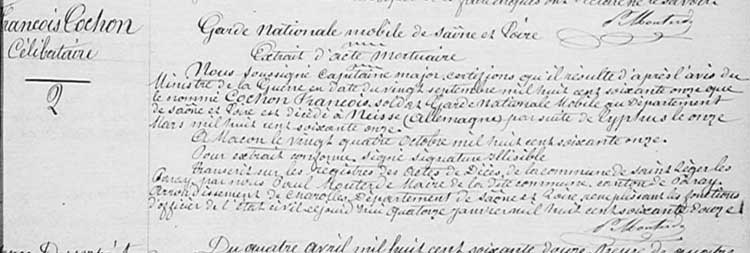 François Cochon
Célibataire
2
P. Mouterde
Garde Nationale mobile de Saône et Loire
Extrait d'acte Mortuaire
Nous soussigné Capitaine major certifions qu'il résulte d'après l'avis du
Ministre de la Guerre en date du vingt septembre mil huit cent soixante onze que
le nommé Cochon François, soldat Garde Nationale Mobile au Département
de Saône et Loire est décédé à Neisse (Allemagne) par suite de typhus le onze
Mars mil huit cent soixante onze.
A Macon le vingt quatre Octobre mil huit cent soixante onze.
Pour extrait conforme signé signature illisible
Transcrit sur les registres des Actes de Décès, de la commune de Saint Léger les
Paray par nous Paul Mouterde Maire de la dite commune, canton de Paray
Arrondissement de Charolles, Département de Saône et Loire, remplissant les fonctions
d'officier de l'état civil ce jourd'hui quatorze janvier mil huit cent soixante douze
P. Mouterde
Du quatre avril mil huit cent soixante douze, heure de quatre